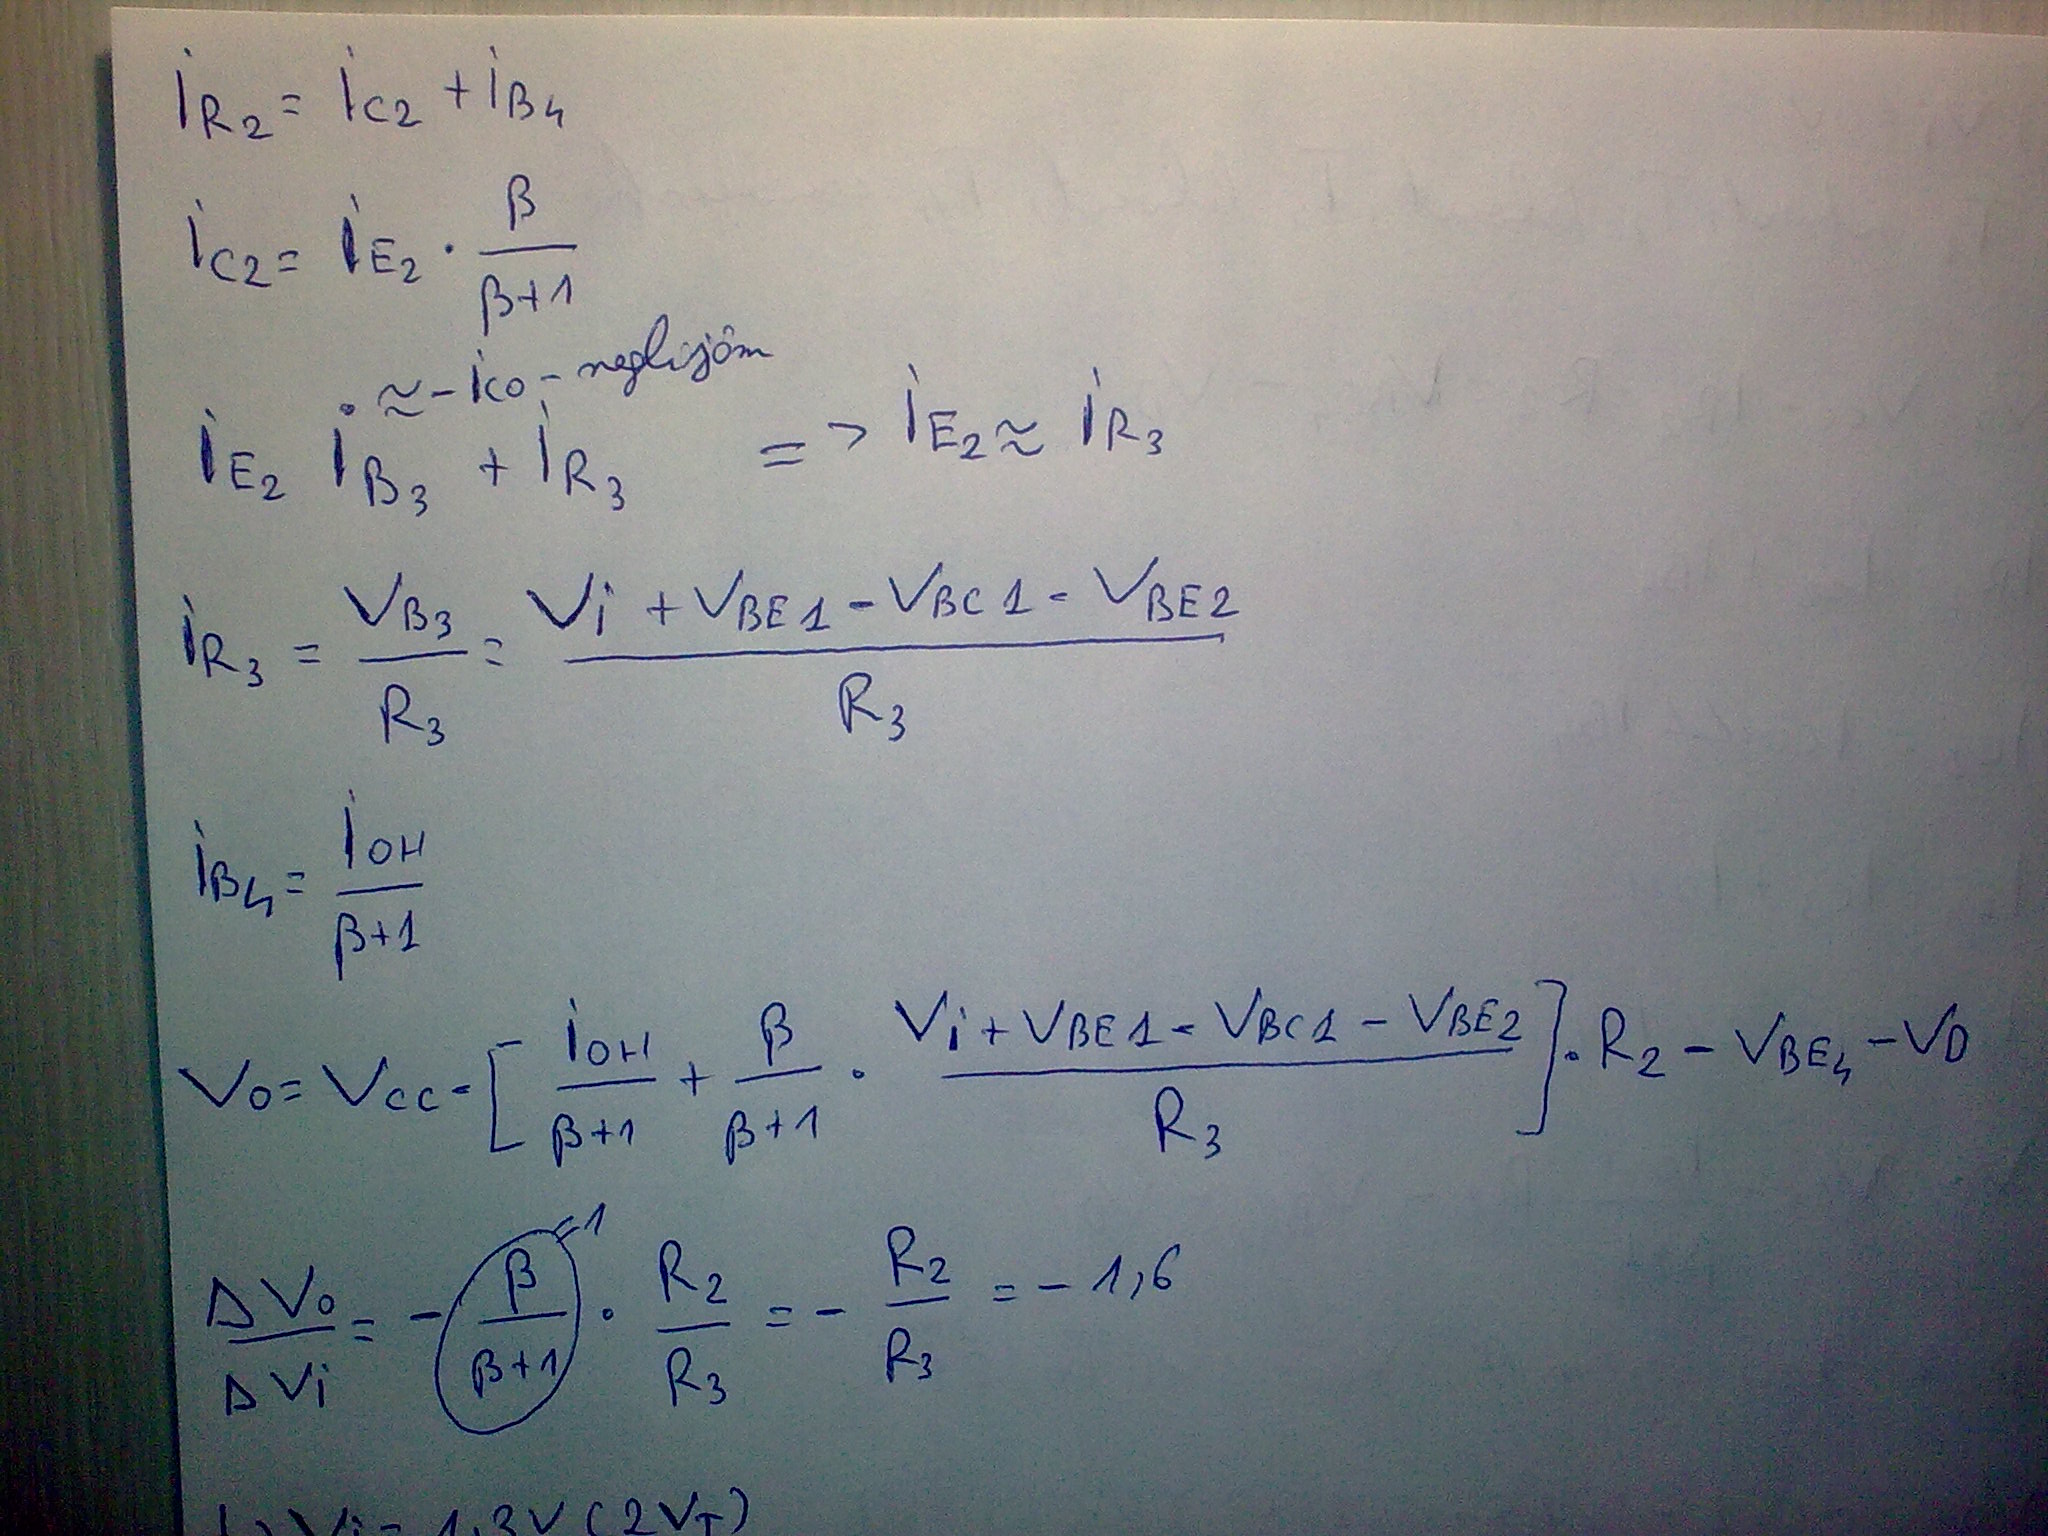 i_{R2} = i_{C2} + i_{B4}
i_{C2} = i_{E2} · \frac{β}{β+1}
≈ - i_{C0} - neglijăm
i_{E2} i_{B3} + i_{R3} => i_{E2} ≈ i_{R3}
i_{R3} = \frac{V_{B3}}{R_3} = \frac{V_i + V_{BE1} - V_{BC1} - V_{BE2}}{R_3}
i_{B4} = \frac{i_{OH}}{β+1}
V_O = V_{CC} - [\frac{i_{OH}}{β+1} + \frac{β}{β+1} · \frac{V_i + V_{BE1} - V_{BC1} - V_{BE2}}{R_3}] · R_2 - V_{BE4} - V_D
\frac{ΔV_O}{ΔV_i} = - \frac{β}{β+1} = 1 · \frac{R_2}{R_3} = - \frac{R_2}{R_3} = - 1,6
V_i = 1,3V (2V_T)